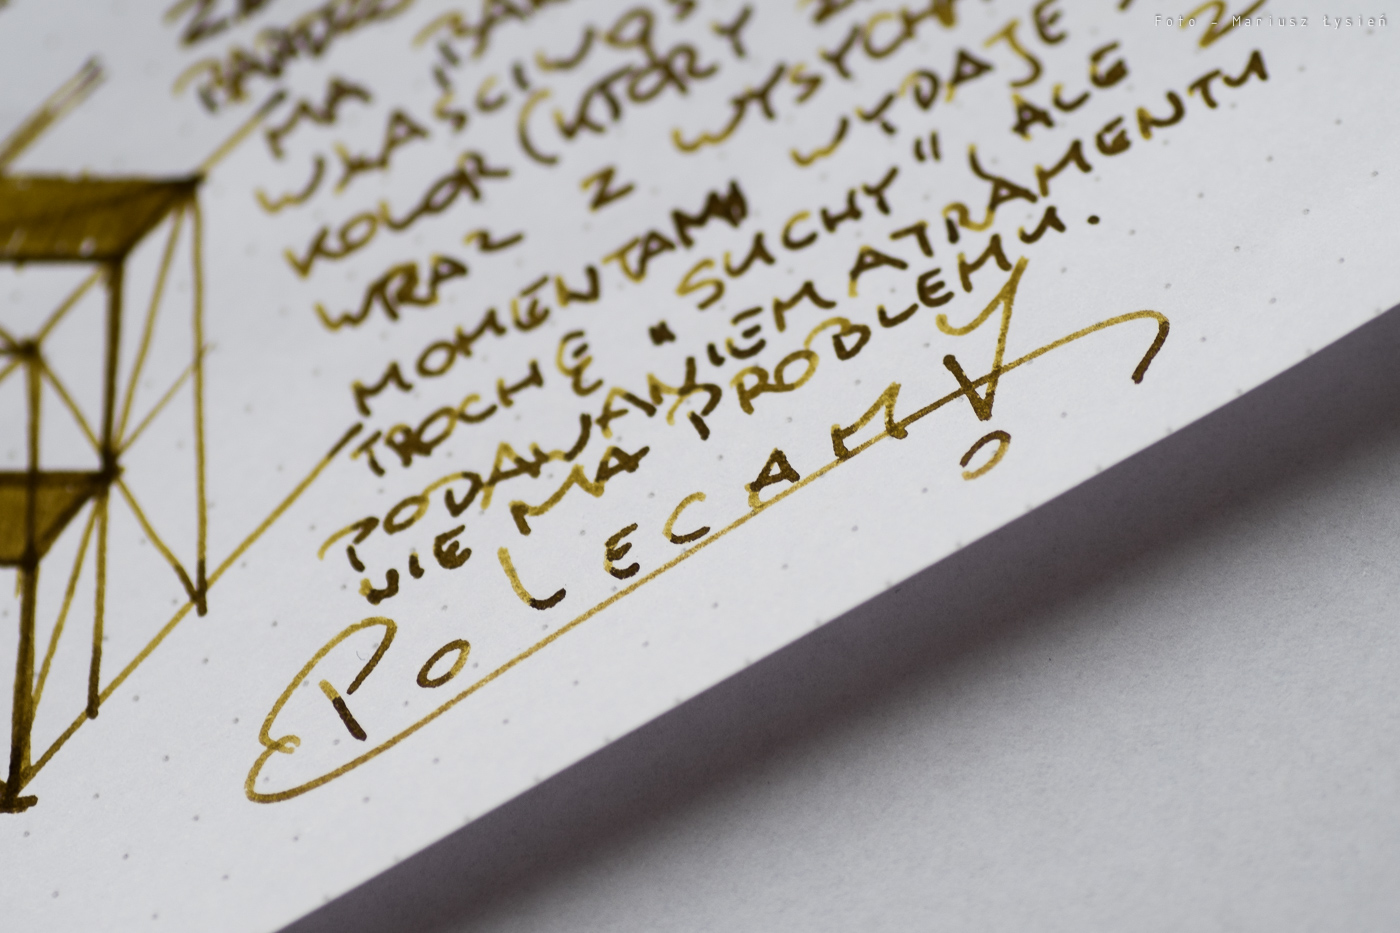 Foto - Mariusz Łysień
BARDZO
MA "BA
WŁAŚCIWOŚ
KOLOR (KTÓRY
WRAZ Z WYSYCH
MOMENTAMI WYDAJE
TROCHĘ "SUCHY" ALE Z
PODAWANIEM ATRAMENTU
NIE MA PROBLEMU.
POLECAMY!